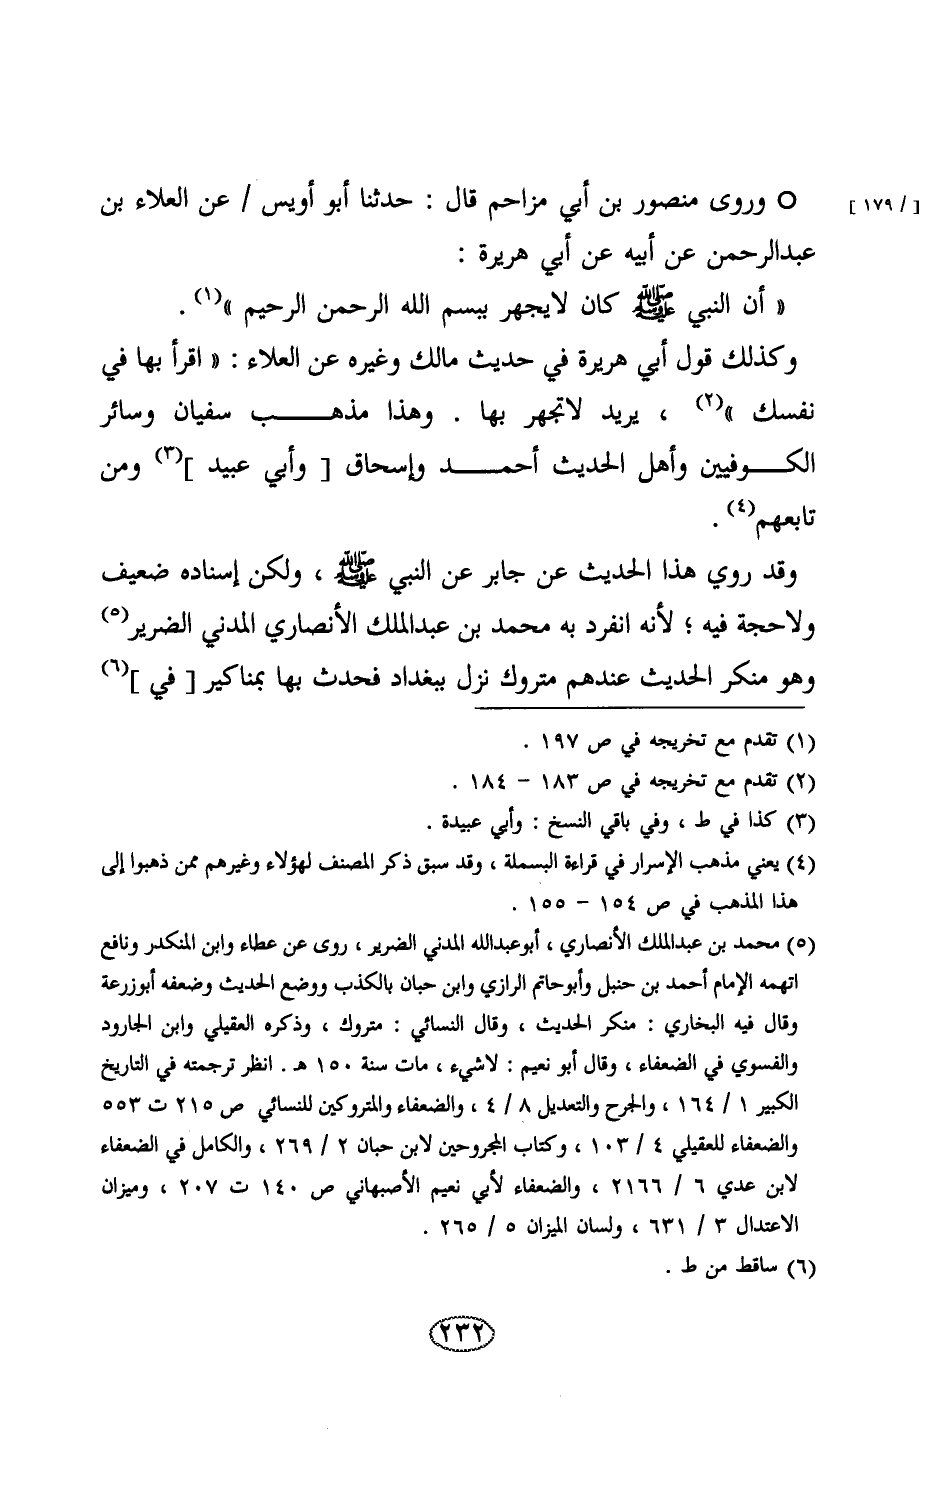 [ / ١٧٩ ]
○ وروى منصور بن أبي مزاحم قال : حدثنا أبو أويس / عن العلاء بن
عبدالرحمن عن أبيه عن أبي هريرة :
« أن النبي ﷺ كان لايجهر ببسم الله الرحمن الرحيم »(١) .
وكذلك قول أبي هريرة في حديث مالك وغيره عن العلاء : « اقرأ بها في
نفسك »(٢) ، يريد لاتجهر بها . وهذا مذهب سفيان وسائر
الكوفيين وأهل الحديث أحمد وإسحاق [ وأبي عبيد ](٣) ومن
تابعهم(٤) .
وقد روي هذا الحديث عن جابر عن النبي ﷺ ، ولكن إسناده ضعيف
ولاحجة فيه ؛ لأنه انفرد به محمد بن عبدالملك الأنصاري المدني الضرير(٥)
وهو منكر الحديث عندهم متروك نزل ببغداد فحدث بها بمناكير [ في ](٦)
(١) تقدم مع تخريجه في ص ١٩٧ .
(٢) تقدم مع تخريجه في ص ١٨٣ - ١٨٤ .
(٣) كذا في ط ، وفي باقي النسخ : وأبي عبيدة .
(٤) يعني مذهب الإسرار في قراءة البسملة ، وقد سبق ذكر المصنف لهؤلاء وغيرهم ممن ذهبوا إلى
هذا المذهب في ص ١٥٤ - ١٥٥ .
(٥) محمد بن عبدالملك الأنصاري ، أبوعبدالله المدني الضرير ، روى عن عطاء وابن المنكدر ونافع
اتهمه الإمام أحمد بن حنبل وأبوحاتم الرازي وابن حبان بالكذب ووضع الحديث وضعفه أبوزرعة
وقال فيه البخاري : منكر الحديث ، وقال النسائي : متروك ، وذكره العقيلي وابن الجارود
والفسوي في الضعفاء ، وقال أبو نعيم : لاشيء ، مات سنة ١٥٠ هـ . انظر ترجمته في التاريخ
الكبير ١ / ١٦٤ ، والجرح والتعديل ٨ / ٤ ، والضعفاء والمتروكين للنسائي ص ٢١٥ ت ٥٥٣
والضعفاء للعقيلي ٤ / ١٠٣ ، وكتاب المجروحين لابن حبان ٢ / ٢٦٩ ، والكامل في الضعفاء
لابن عدي ٦ / ٢١٦٦ ، والضعفاء لأبي نعيم الأصبهاني ص ١٤٠ ت ٢٠٧ ، وميزان
الاعتدال ٣ / ٦٣١ ، ولسان الميزان ٥ / ٢٦٥ .
(٦) ساقط من ط .
٢٣٢